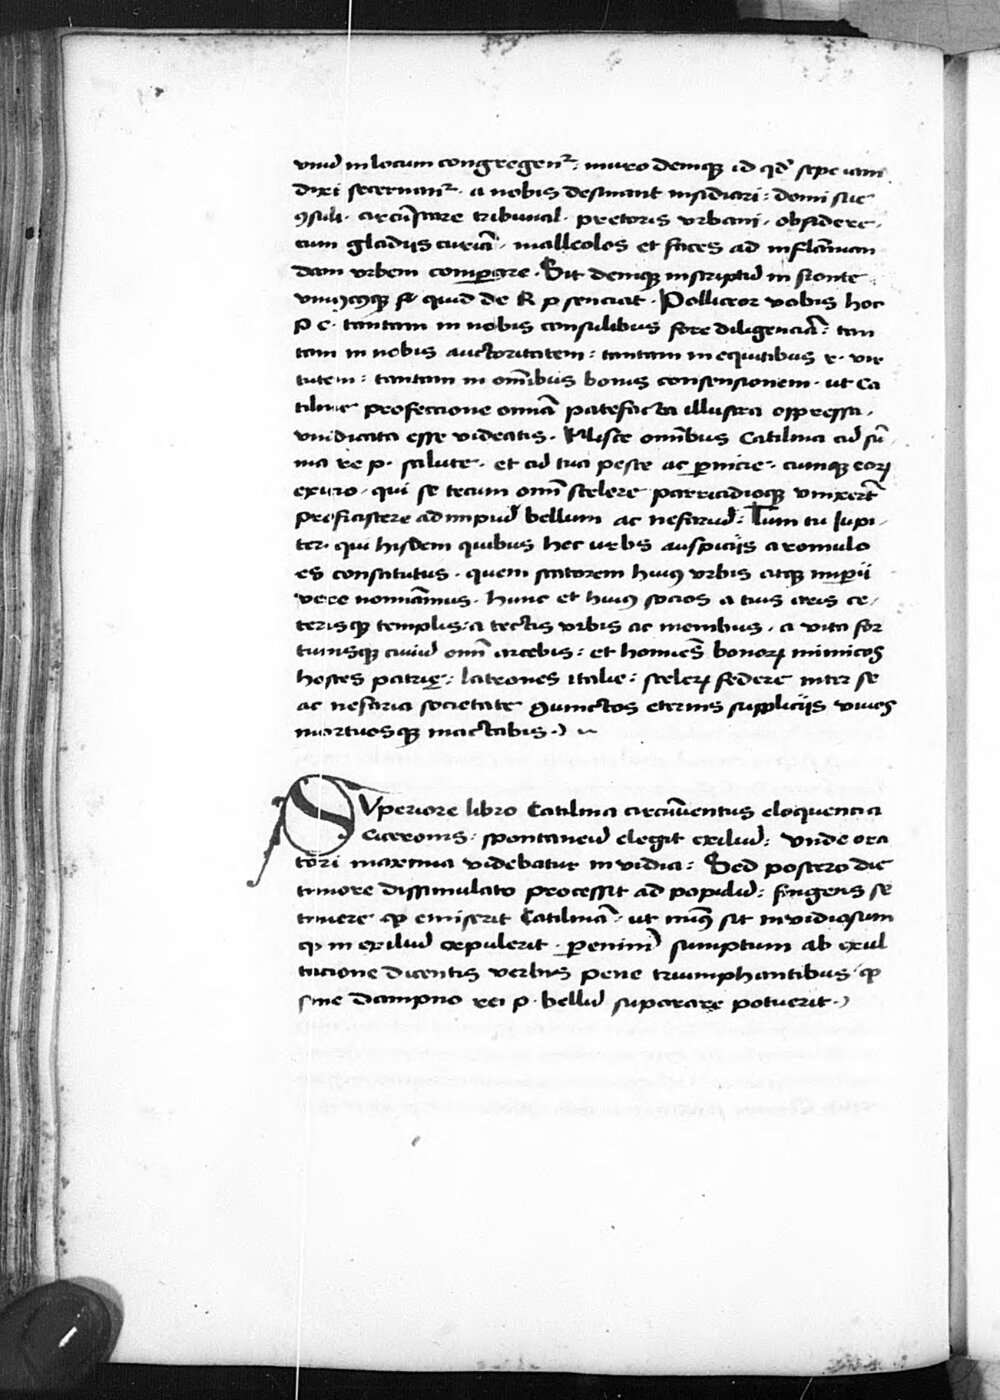 vnū in locum congregenᷣ: muro deniqꝫ id qď sepe iam
dixi secernanᷣ. a nobis desinant insidiari: domi sue
ꝯsuli. circūstare tribunal. pretoris vrbani. obsidere.
cum gladijs curiā. malleolos et faces ad inflāman
dam vrbem comꝑare. Sit deniqꝫ inscriptū in fronte
quid de R p senciat. Polliceor vobis hoc
p c. tantam in nobis consulibus fore diligenciā: tan
tam in nobis auctoritatem: tantam in equitibus r. vir
tutem: tantam in om̄ibus bonis consensionem. ut Ca
tiline profeccione omīa patefacta illustra oppressa.
vindicata esse videatis. Hisce om̄ibus Catilina cū sū
ma re p. salute. et cū tua peste ac ꝑnicie. cumqꝫ eoꝝ
exicio. qui se tecum omī scelere parricidioqꝫ vinxerūt
Proficiscere ad impiū bellum ac nefariū: Tum tu Iupi
ter. qui hisdem quibus hec urbs auspicijs a romulo
es constitutus. quem statorem huiꝰ vrbis atqꝫ imꝑij
vere nomīamus. hunc et huiꝰ socios a tuis aris ce/
terisqꝫ templis: a tectis vrbis ac menibus. a vita for
tunisqꝫ ciuiū omī arcebis: et homīes bonoꝝ inimicos
hostes patrię: latrones italie: sceleꝝ federe inter se
ac nefaria societate ꝯiunctos eternis supplicijs viuos
mortuosqꝫ mactabis.)
SVperiore libro Catilina circūuentus eloquencia
Ciceronis: spontaneū elegit exiliū: vnde ora
tori maxima videbatur invidia: Sed postero die
timore dissimulato processit ad populū: fingens se
timere ꝙ emiserit Catilinā: ut minꝰ sit invidiosum
ꝙ in exiliū expulerit. sumptum ab exul
tacione dicentis verbis pene triumphantibus ꝙ
sine dampno rei p. bellū suparare potuerit.)